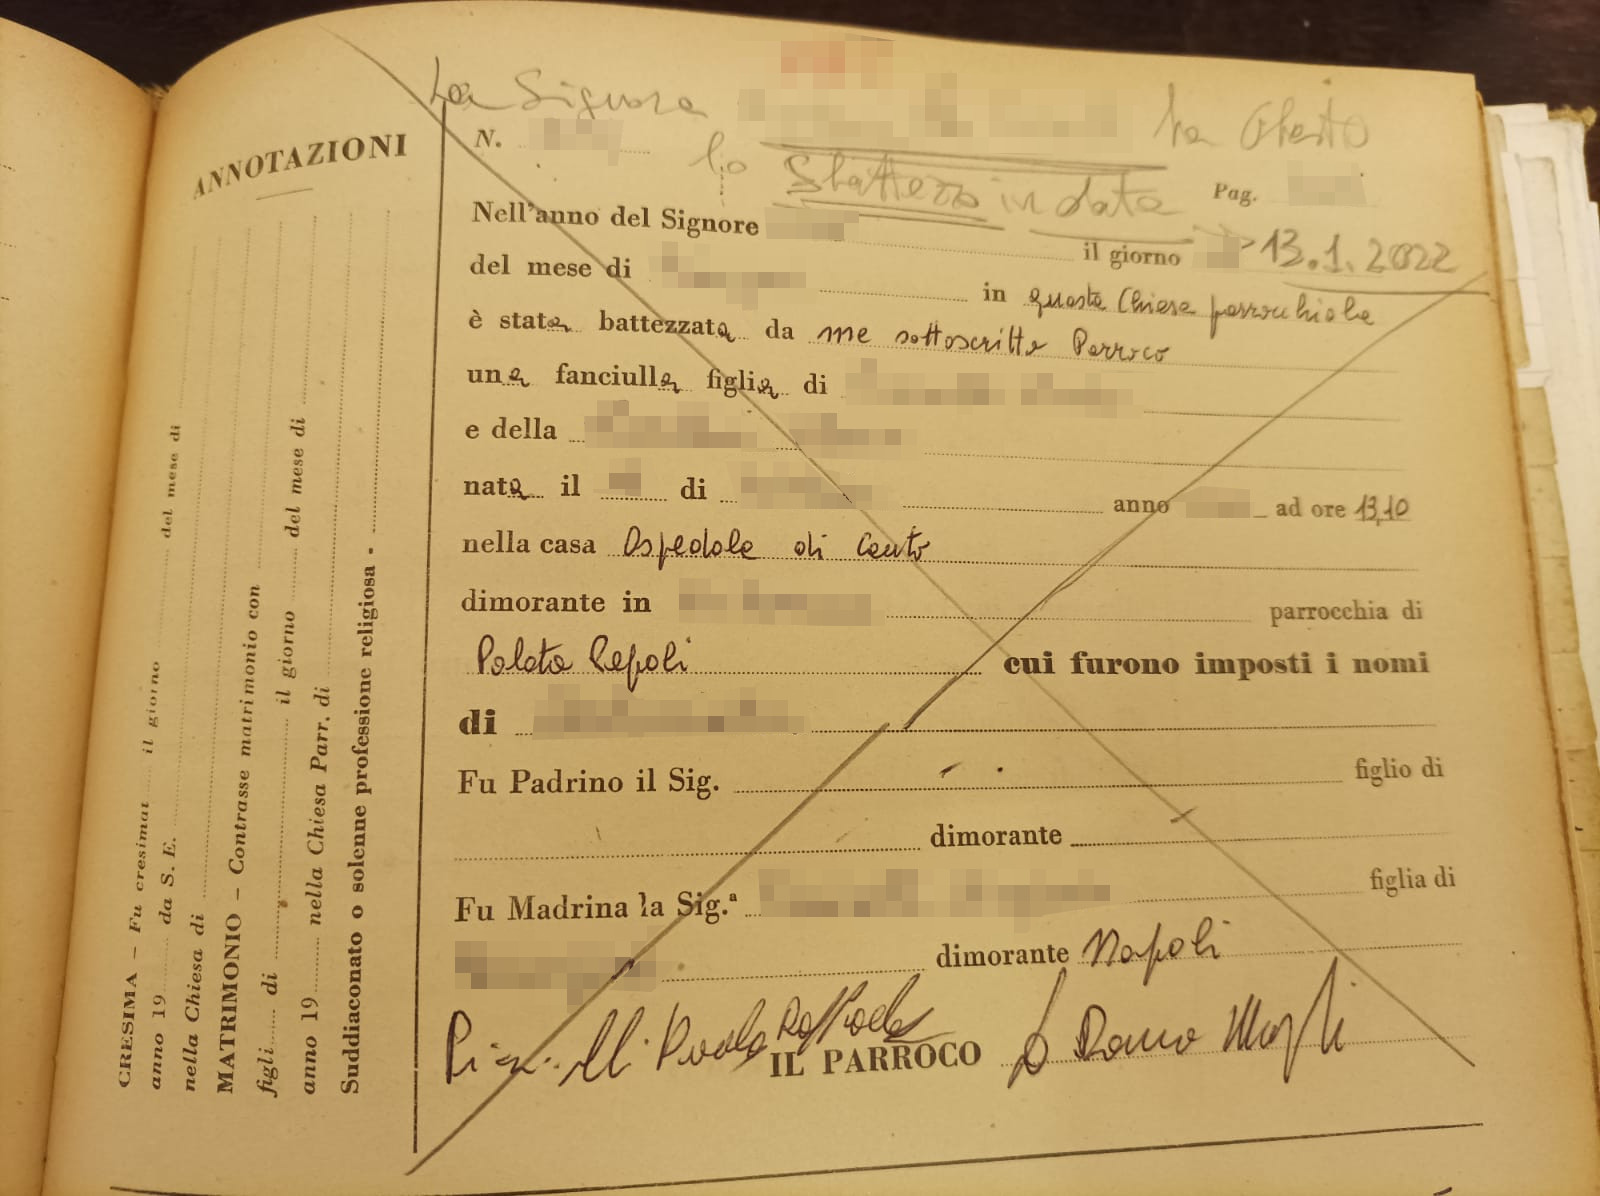 La Signora ha chiesto
N.
lo Sbattezzo in data
Pag.
Nell'anno del Signore il giorno 13.1.2022
del mese di in questa Chiesa parrocchiale
è stata battezzata da me sottoscritto Parroco
una fanciulla figlia di
e della
nata il di anno ad ore 13,10
nella casa Ospedale di Cento
dimorante in parrocchia di
Palata Pepoli cui furono imposti i nomi
di
Fu Padrino il Sig. figlio di
dimorante
Fu Madrina la Sig.ª figlia di
dimorante Napoli
Paola Raffaela
IL PARROCO D Romo
ANNOTAZIONI
CRESIMA – Fu cresimat il giorno del mese di
anno 19 da S. E.
nella Chiesa di
MATRIMONIO – Contrasse matrimonio con
figli di il giorno del mese di
anno 19 nella Chiesa Parr. di
Suddiaconato o solenne professione religiosa -